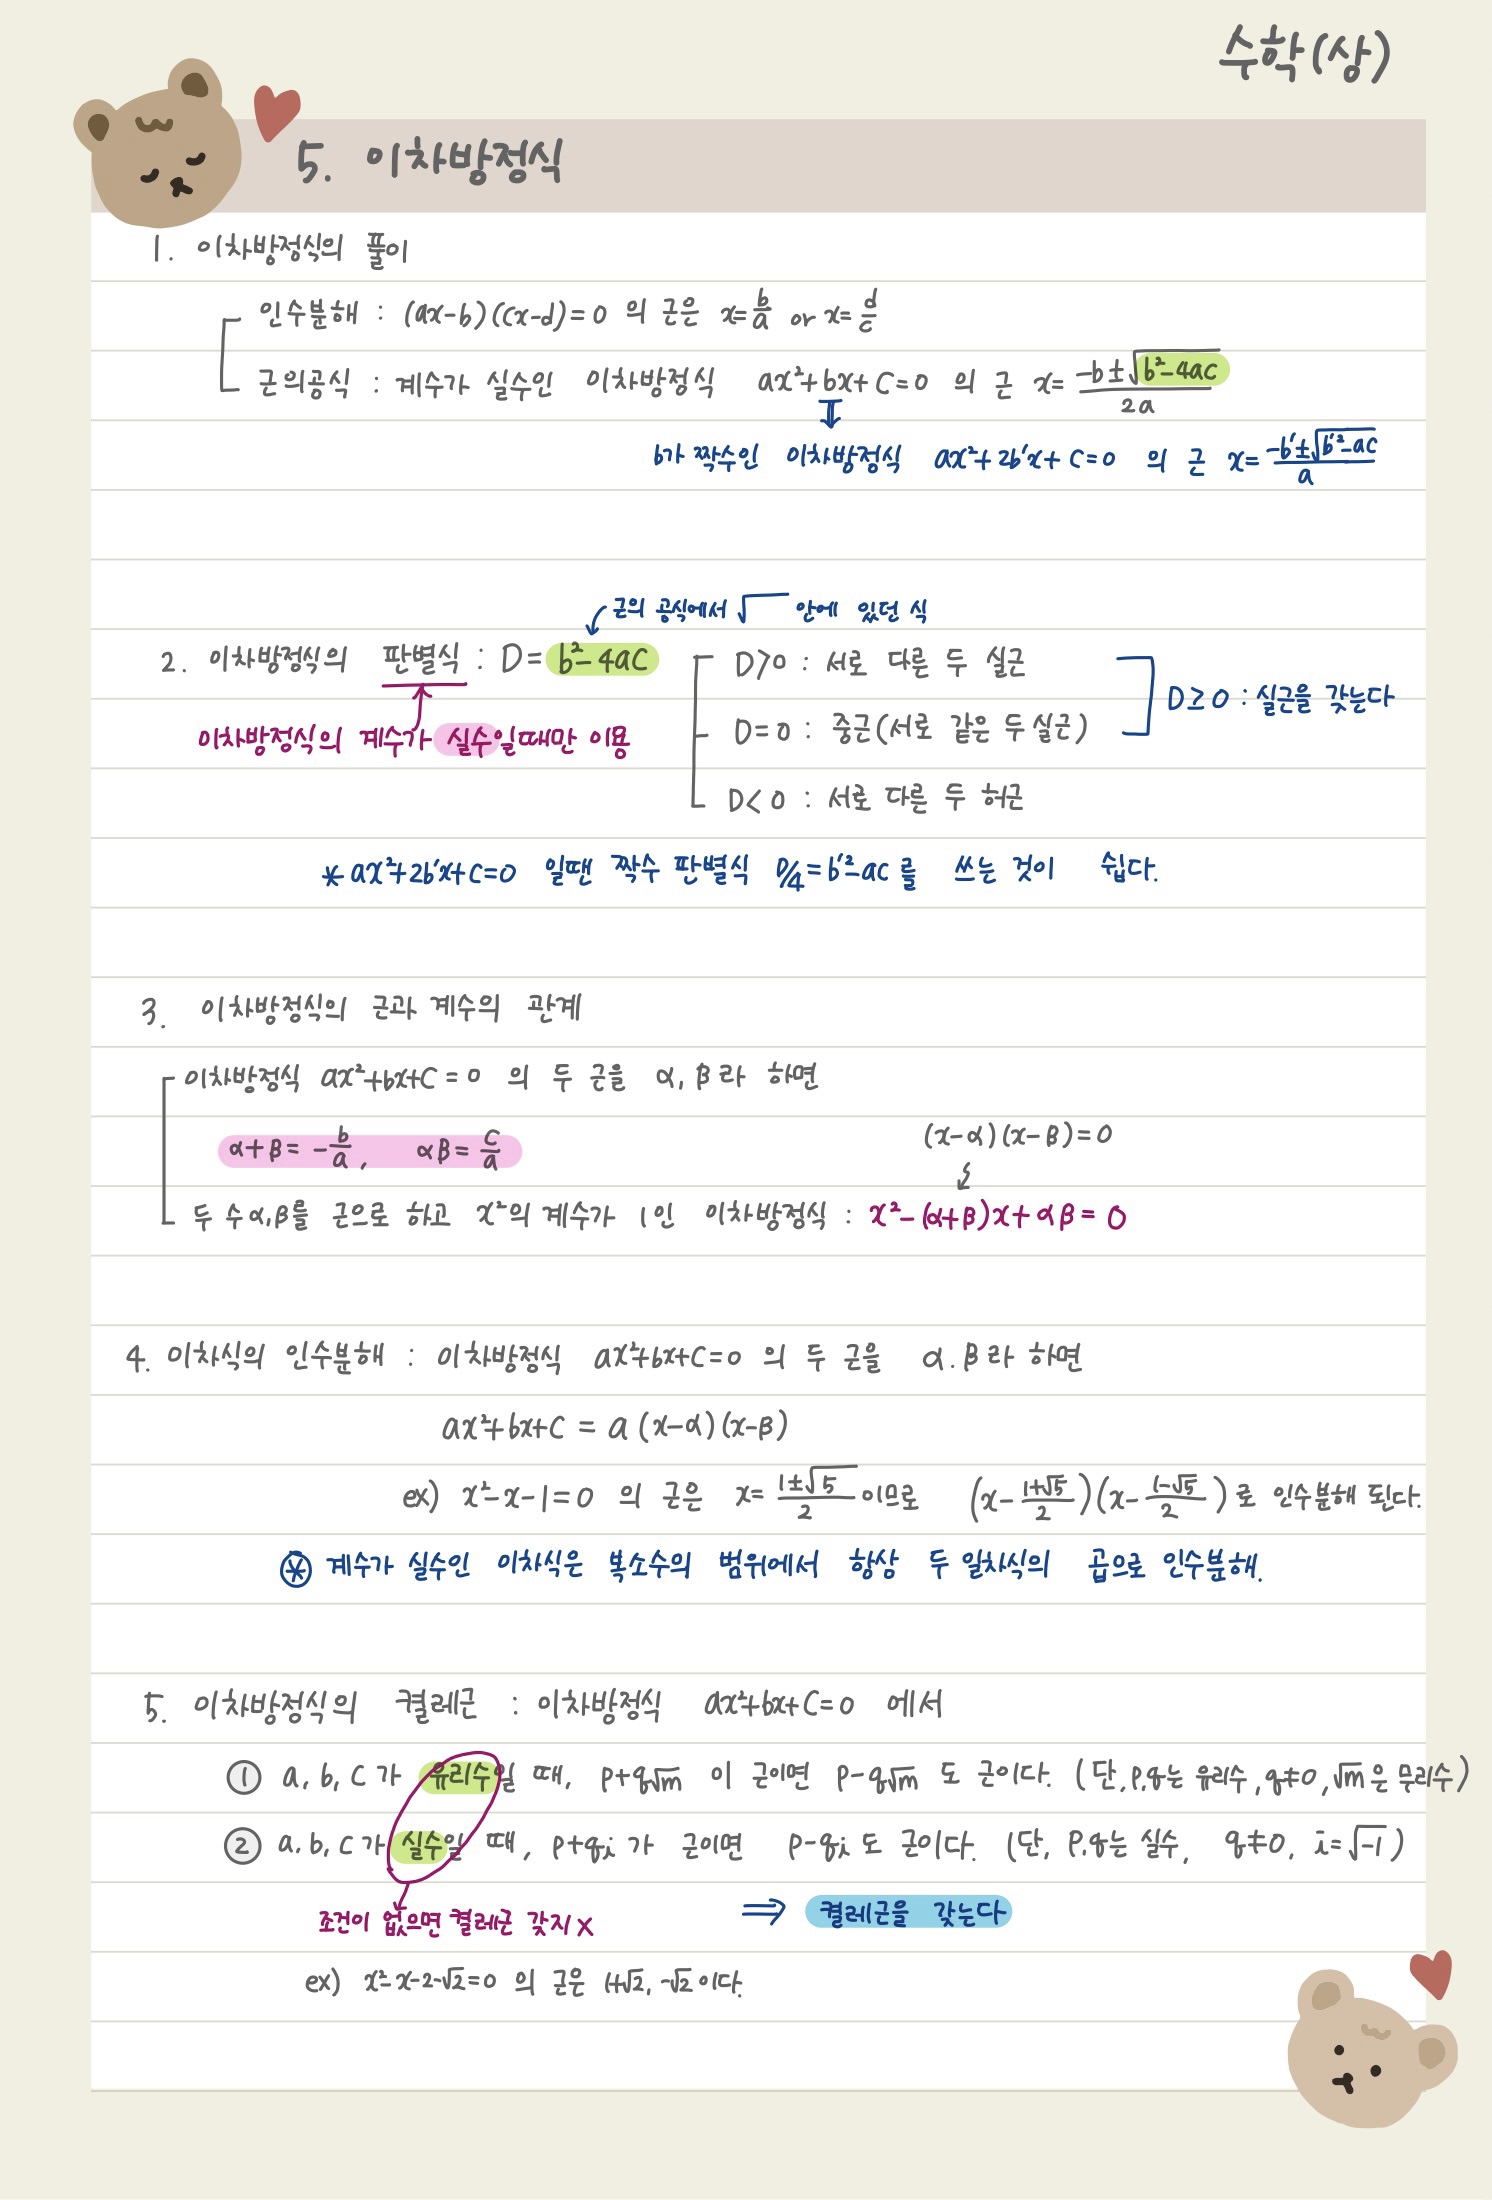 수학(상)
5. 이차방정식
1. 이차방정식의 풀이
인수분해 : (ax-b)(cx-d)=0 의 근은 x=b/a or x=d/c
근의공식 : 계수가 실수인 이차방정식 ax²+bx+c=0 의 근 x=(-b±√(b²-4ac))/2a
⇓
b가 짝수인 이차방정식 ax²+2b'x+c=0 의 근 x=(-b'±√(b'²-ac))/a
근의 공식에서 √ 안에 있던 식
2. 이차방정식의 판별식 : D=b²-4ac
D>0 : 서로 다른 두 실근
D=0 : 중근(서로 같은 두 실근)
D≥0 : 실근을 갖는다
이차방정식의 계수가 실수일때만 이용
D<0 : 서로 다른 두 허근
* ax²+2b'x+c=0 일땐 짝수 판별식 D/4=b'²-ac를 쓰는 것이 쉽다.
3. 이차방정식의 근과 계수의 관계
이차방정식 ax²+bx+c=0 의 두 근을 α, β라 하면
α+β=-b/a, αβ=c/a
(x-α)(x-β)=0
두 수 α,β를 근으로 하고 x²의 계수가 1인 이차방정식 : x²-(α+β)x+αβ=0
4. 이차식의 인수분해 : 이차방정식 ax²+bx+c=0 의 두 근을 α.β라 하면
ax²+bx+c = a(x-α)(x-β)
ex) x²-x-1=0 의 근은 x=(1±√5)/2 이므로 (x-(1+√5)/2)(x-(1-√5)/2)로 인수분해 된다.
⊛ 계수가 실수인 이차식은 복소수의 범위에서 항상 두 일차식의 곱으로 인수분해.
5. 이차방정식의 켤레근 : 이차방정식 ax²+bx+c=0 에서
① a, b, c가 유리수일 때, p+q√m 이 근이면 p-q√m 도 근이다. (단, p,q는 유리수, q≠0, √m은 무리수)
② a, b, c가 실수일 때, p+qi 가 근이면 p-qi 도 근이다. (단, p,q는 실수, q≠0, i=√-1)
조건이 없으면 켤레근 갖지 x
⇒ 켤레근을 갖는다
ex) x²-x-2-√2=0 의 근은 1+√2, -√2이다.